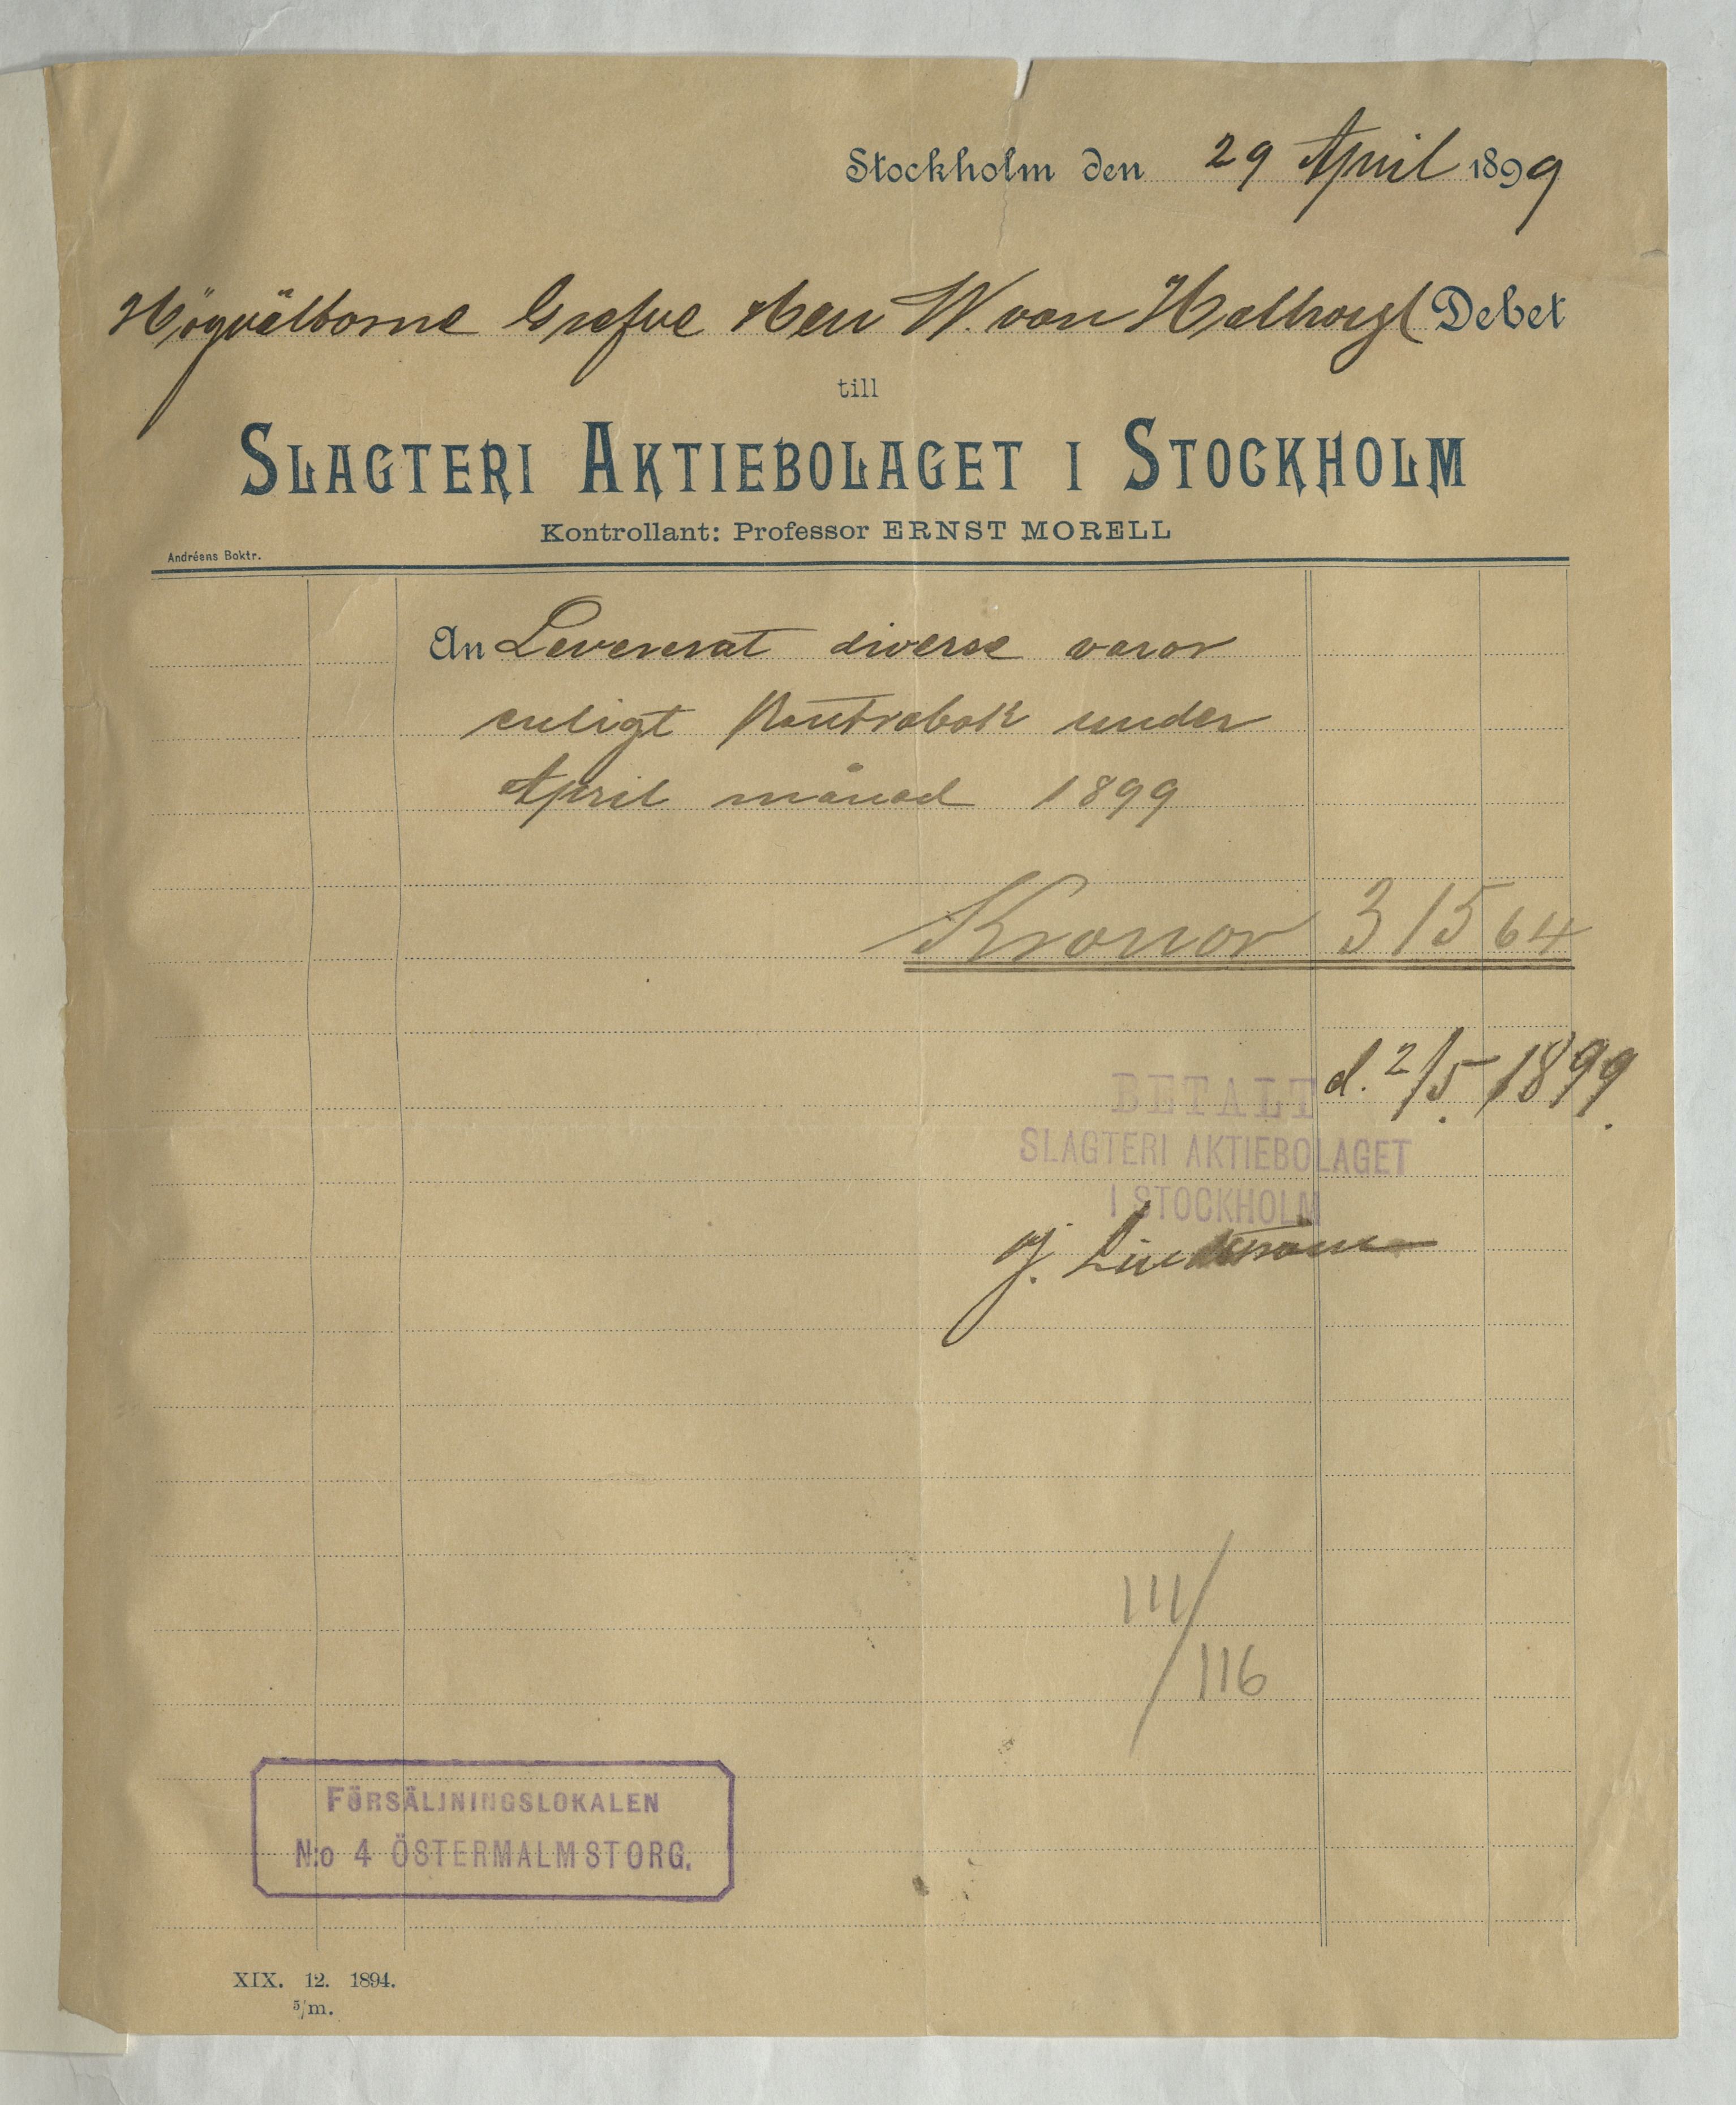 Stockholm den 29 April 1899
Högvälborne Grefve Herr W. von Hallwyl Debet
till
SLAGTERI AKTIEBOLAGET I STOCKHOLM
Kontrollant: Professor ERNST MORELL
Andréens Boktr.
An Levererat diverse varor
enligt Kontrabok under
April månad 1899
Kronor 315 64
d. 2/5 1899.
BETALT
SLAGTERI AKTIEBOLAGET
I STOCKHOLM
111/116
FÖRSÄLJNINGSLOKALEN
N:o 4 ÖSTERMALMSTORG.
XIX. 12. 1894.
5/m.